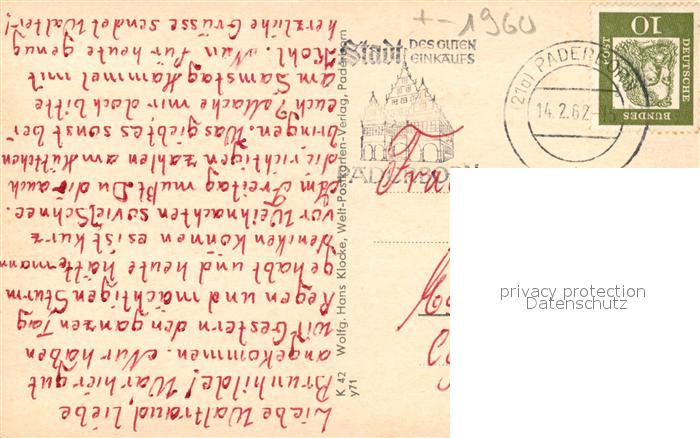 Liebe Waltraud Liebe
Brunhilde! War hier gut
angekommen. Nur haben
wir Gestern den ganzen Tag
Regen und mächtigen Sturm
gehabt und heute hätte mann
dencken können es ist kurz
vor Weihnachten soviel Schnee.
Am Freitag mußt Du dir auch
die richtigen zahlen am Küttchen
bringen. Was giebt es sonst bei
euch? Mache mir doch bitte
am Samstag Hammel mit
Kohl. Nun für heute genug
herzliche Grüsse sendet Walter!
K 42 Wolfg. Hans Klocke, Welt-Postkarten-Verlag, Paderborn
y71
+- 1960
Stadt DES GUTEN
EINKAUFS
PADERBORN
(21a) PADERBORN
14.2.62
DEUTSCHE
BUNDES
10
privacy protection
Datenschutz